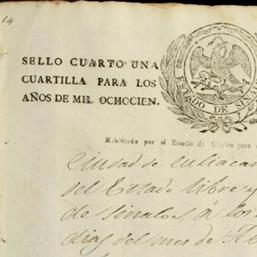 14
SELLO CUARTO UNA
CUARTILLA PARA LOS
AÑOS DE MIL OCHOCIEN.
ESTADO DE SIN
Habilitado por el Estado de Sinaloa para
Ciudad de Culiacan
del Estado libre y
de Sinaloa, á los
dias del mes de